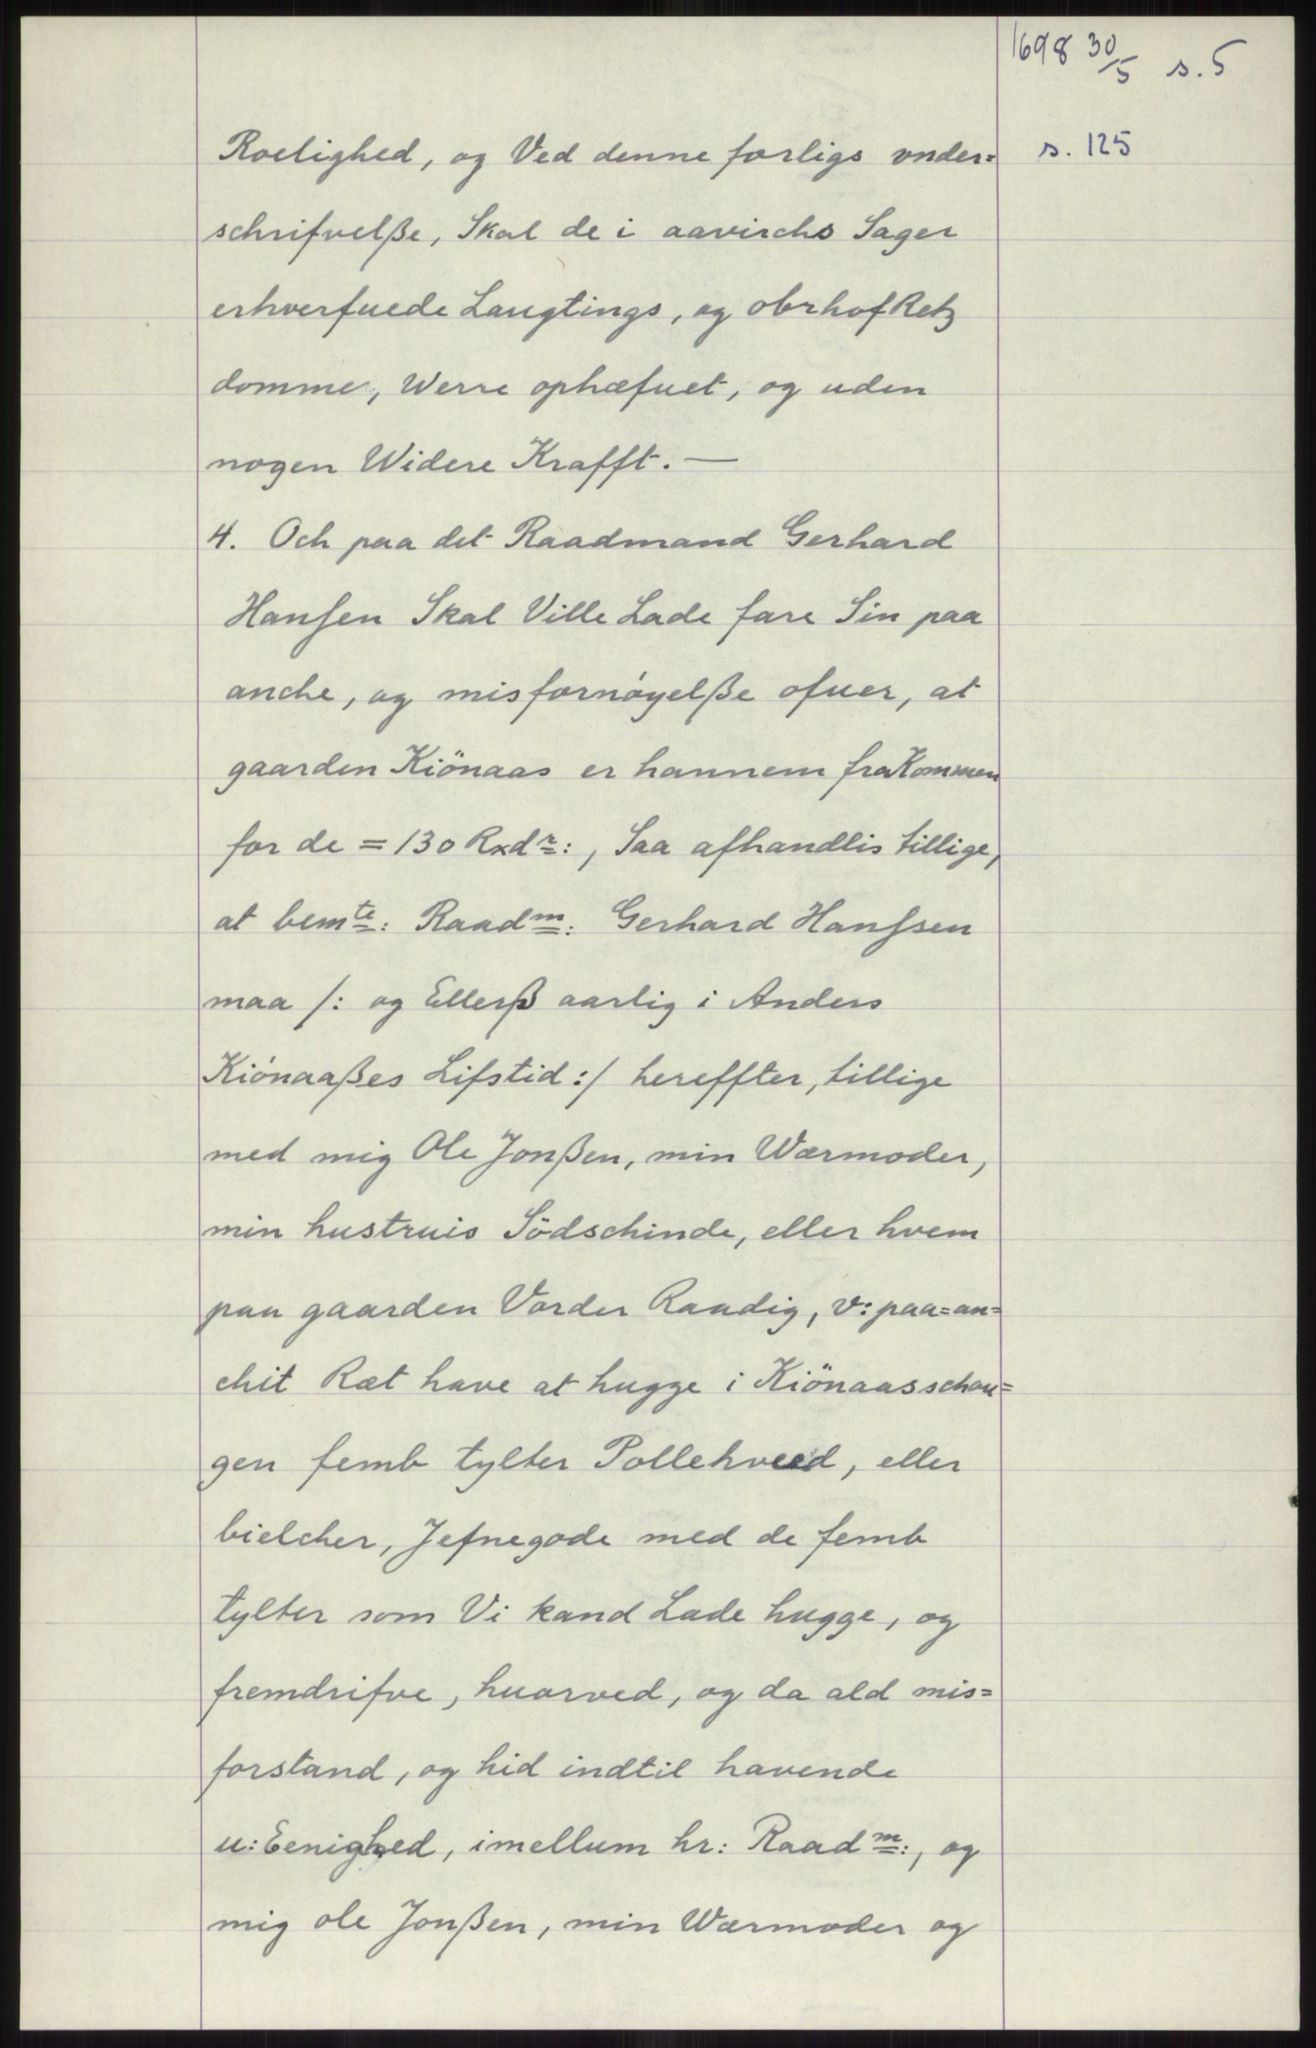 1698 30/5 s. 5
s. 125
Roelighed, og Ved denne forligs vnder=
schrifvelße, Skal de i aavirchs Sager
erhverfuede Laugtings, og obrhofRetz
domme, Werre ophæfuet, og uden
nogen Widere Krafft. —
4. Och paa det Raadmand Gerhard
Hansen Skal Ville Lade fare Sin paa
anche, og misfornöyelße ofuer, at
gaarden Kiönaas er hannem fraKommen
for de = 130 Rxdr:, Saa afhandlis tillige,
at bemte: Raadm: Gerhard Hanssen
maa /: og Ellerß aarlig i Anders
Kiönaaßes Lifstid :/ hereffter, tillige
med mig Ole Jonßen, min Wærmoder,
min hustruis Södschinde, eller hvem
paa gaarden Vorder Raadig, v: paa=an=
chit Ræt have at hugge i Kiönaasschou=
gen femb tylter Pollehveed, eller
bielcher, Jefnegode med de femb
tylter som Vi kand Lade hugge, og
fremdrifve, huorved, og da ald mis=
forstand, og hid indtil havende
u: Eenighed, imellum hr: Raadm:, og
mig ole Jonßen, min Wærmoder og